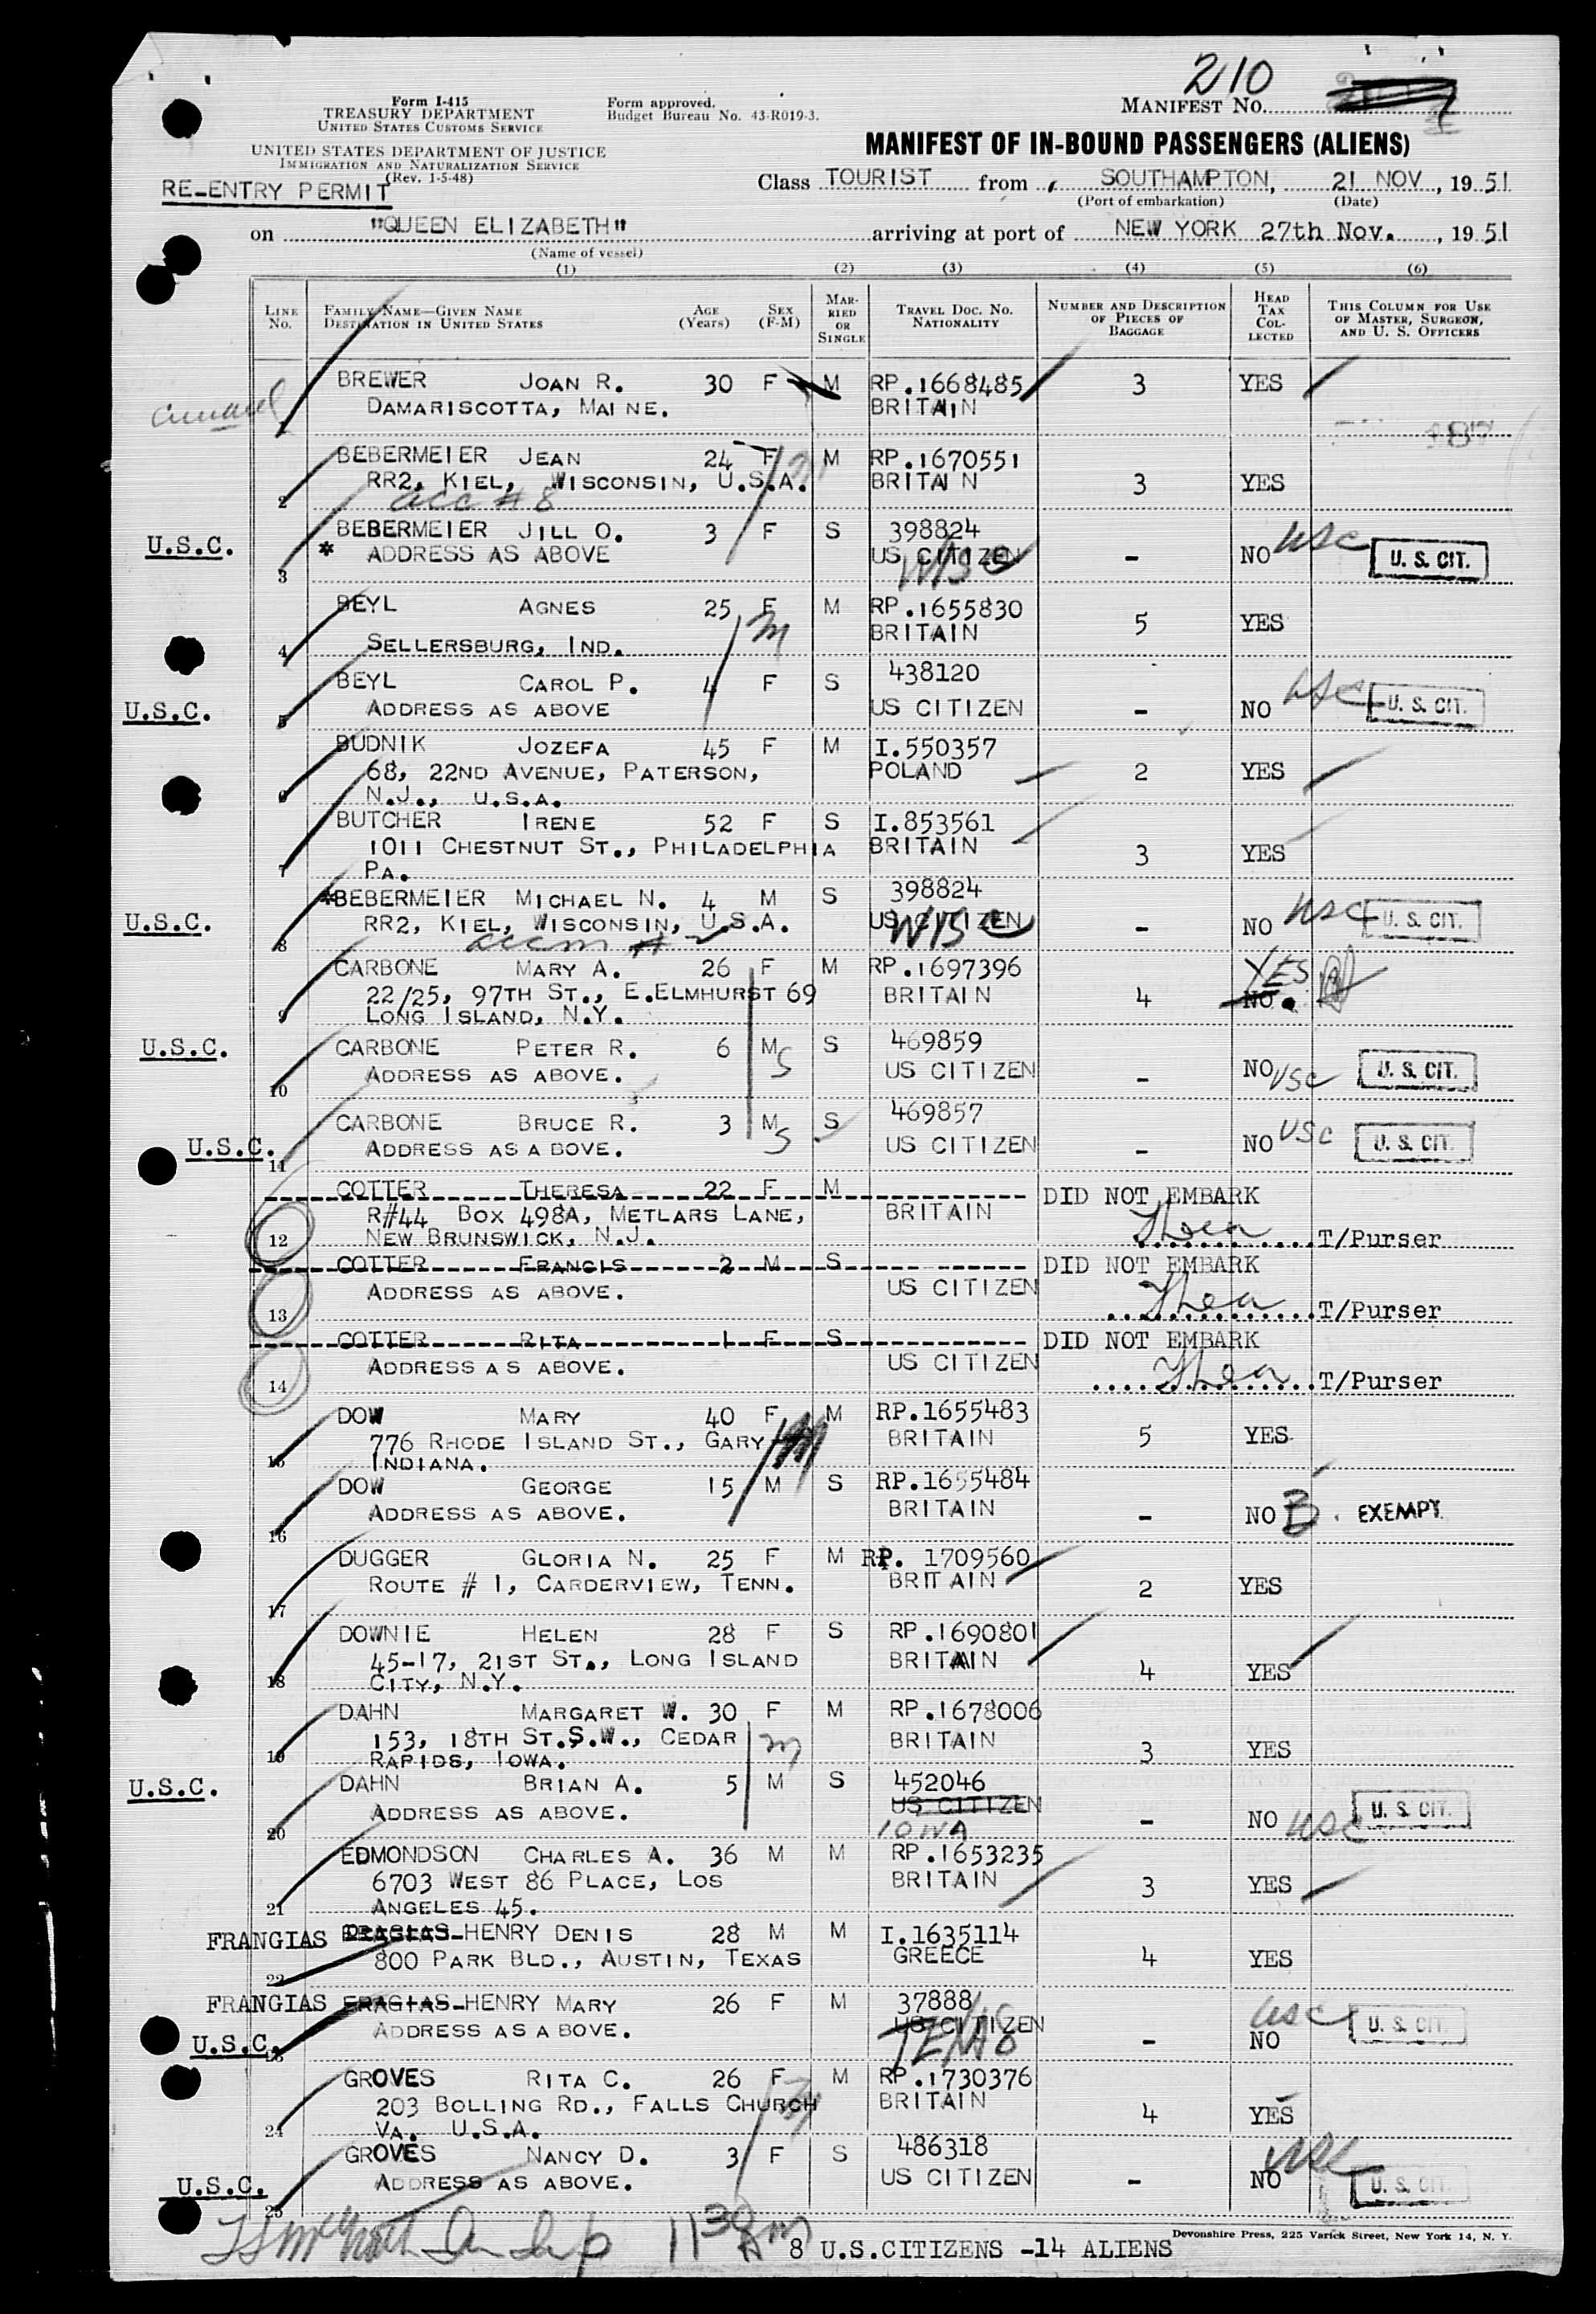 210
Form I-415
TREASURY DEPARTMENT
UNITED STATES CUSTOMS SERVICE
Form approved.
Budget Bureau No. 43-R019-3.
MANIFEST NO.
UNITED STATES DEPARTMENT OF JUSTICE
IMMIGRATION AND NATURALIZATION SERVICE
(Rev. 1-5-48)
MANIFEST OF IN-BOUND PASSENGERS (ALIENS)
RE-ENTRY PERMIT
Class TOURIST from SOUTHAMPTON, 21 NOV, 1951
(Port of embarkation) (Date)
on "QUEEN ELIZABETH" arriving at port of NEW YORK 27th Nov., 1951
(Name of vessel)
(1) (2) (3) (4) (5) (6)
LINE No. FAMILY NAME—GIVEN NAME DESTINATION IN UNITED STATES AGE (Years) SEX (F-M) MARRIED OR SINGLE TRAVEL DOC. NO. NATIONALITY NUMBER AND DESCRIPTION OF PIECES OF BAGGAGE HEAD TAX COLLECTED THIS COLUMN FOR USE OF MASTER, SURGEON, AND U. S. OFFICERS
BREWER JOAN R. 30 F M RP.1668485 3 YES
DAMARISCOTTA, MAINE. BRITAIN
1
187
BEBERMEIER JEAN 24 F M RP.1670551
RR2, KIEL, WISCONSIN, U.S.A. BRITAIN 3 YES
2 acc # 8
BEBERMEIER JILL O. 3 F S 398824
U.S.C. * ADDRESS AS ABOVE US CITIZEN - NO USC U. S. CIT.
3 WISC
BEYL AGNES 25 F M RP.1655830
BRITAIN 5 YES
4 SELLERSBURG, IND. M
BEYL CAROL P. 4 F S 438120
U.S.C. 5 ADDRESS AS ABOVE US CITIZEN - NO USC U. S. CIT.
BUDNIK JOZEFA 45 F M I.550357
68, 22ND AVENUE, PATERSON, POLAND 2 YES
6 N.J., U.S.A.
BUTCHER IRENE 52 F S I.853561
1011 CHESTNUT ST., PHILADELPHIA BRITAIN 3 YES
7 PA.
*BEBERMEIER MICHAEL N. 4 M S 398824
U.S.C. RR2, KIEL, WISCONSIN, U.S.A. US CITIZEN - NO USC U. S. CIT.
8 WISC
CARBONE MARY A. 26 F M RP.1697396 YES
22/25, 97TH ST., E.ELMHURST 69 BRITAIN 4 NO.
9 LONG ISLAND, N.Y.
U.S.C. CARBONE PETER R. 6 M S 469859
10 ADDRESS AS ABOVE. S US CITIZEN - NO USC U. S. CIT.
CARBONE BRUCE R. 3 M S 469857
U.S.C. 11 ADDRESS AS A BOVE. S US CITIZEN - NO USC U. S. CIT.
COTTER THERESA 22 F M DID NOT EMBARK
R#44 BOX 498A, METLARS LANE, BRITAIN
12 NEW BRUNSWICK, N.J. T/Purser
COTTER FRANCIS 2 M S DID NOT EMBARK
ADDRESS AS ABOVE. US CITIZEN
13 T/Purser
COTTER RITA 1 F S DID NOT EMBARK
ADDRESS AS ABOVE. US CITIZEN
14 T/Purser
DOW MARY 40 F M RP.1655483
776 RHODE ISLAND ST., GARY BRITAIN 5 YES
15 INDIANA.
DOW GEORGE 15 M S RP.1655484
ADDRESS AS ABOVE. BRITAIN - NO B. EXEMPT.
16
DUGGER GLORIA N. 25 F M RP. 1709560
ROUTE # 1, CARDERVIEW, TENN. BRITAIN 2 YES
17
DOWNIE HELEN 28 F S RP.1690801
45-17, 21ST ST., LONG ISLAND BRITAIN 4 YES
18 CITY, N.Y.
DAHN MARGARET W. 30 F M RP.1678006
153, 18TH ST.S.W., CEDAR BRITAIN 3 YES
19 RAPIDS, IOWA. M
U.S.C. DAHN BRIAN A. 5 M S 452046
ADDRESS AS ABOVE. US CITIZEN - NO USC U. S. CIT.
20 IOWA
EDMONDSON CHARLES A. 36 M M RP.1653235
6703 WEST 86 PLACE, LOS BRITAIN 3 YES
21 ANGELES 45.
FRANGIAS FRAGIAS-HENRY DENIS 28 M M I.1635114
800 PARK BLD., AUSTIN, TEXAS GREECE 4 YES
22
FRANGIAS FRAGIAS-HENRY MARY 26 F M 37888 USC
U.S.C. ADDRESS AS A BOVE. US CITIZEN - NO U. S. CIT.
23
GROVES RITA C. 26 F M RP.1730376
203 BOLLING RD., FALLS CHURCH BRITAIN 4 YES
24 VA. U.S.A.
GROVES NANCY D. 3 F S 486318
U.S.C. ADDRESS AS ABOVE. US CITIZEN - NO USC U. S. CIT.
25
Devonshire Press, 225 Varick Street, New York 14, N. Y.
1130 8 U.S.CITIZENS -14 ALIENS